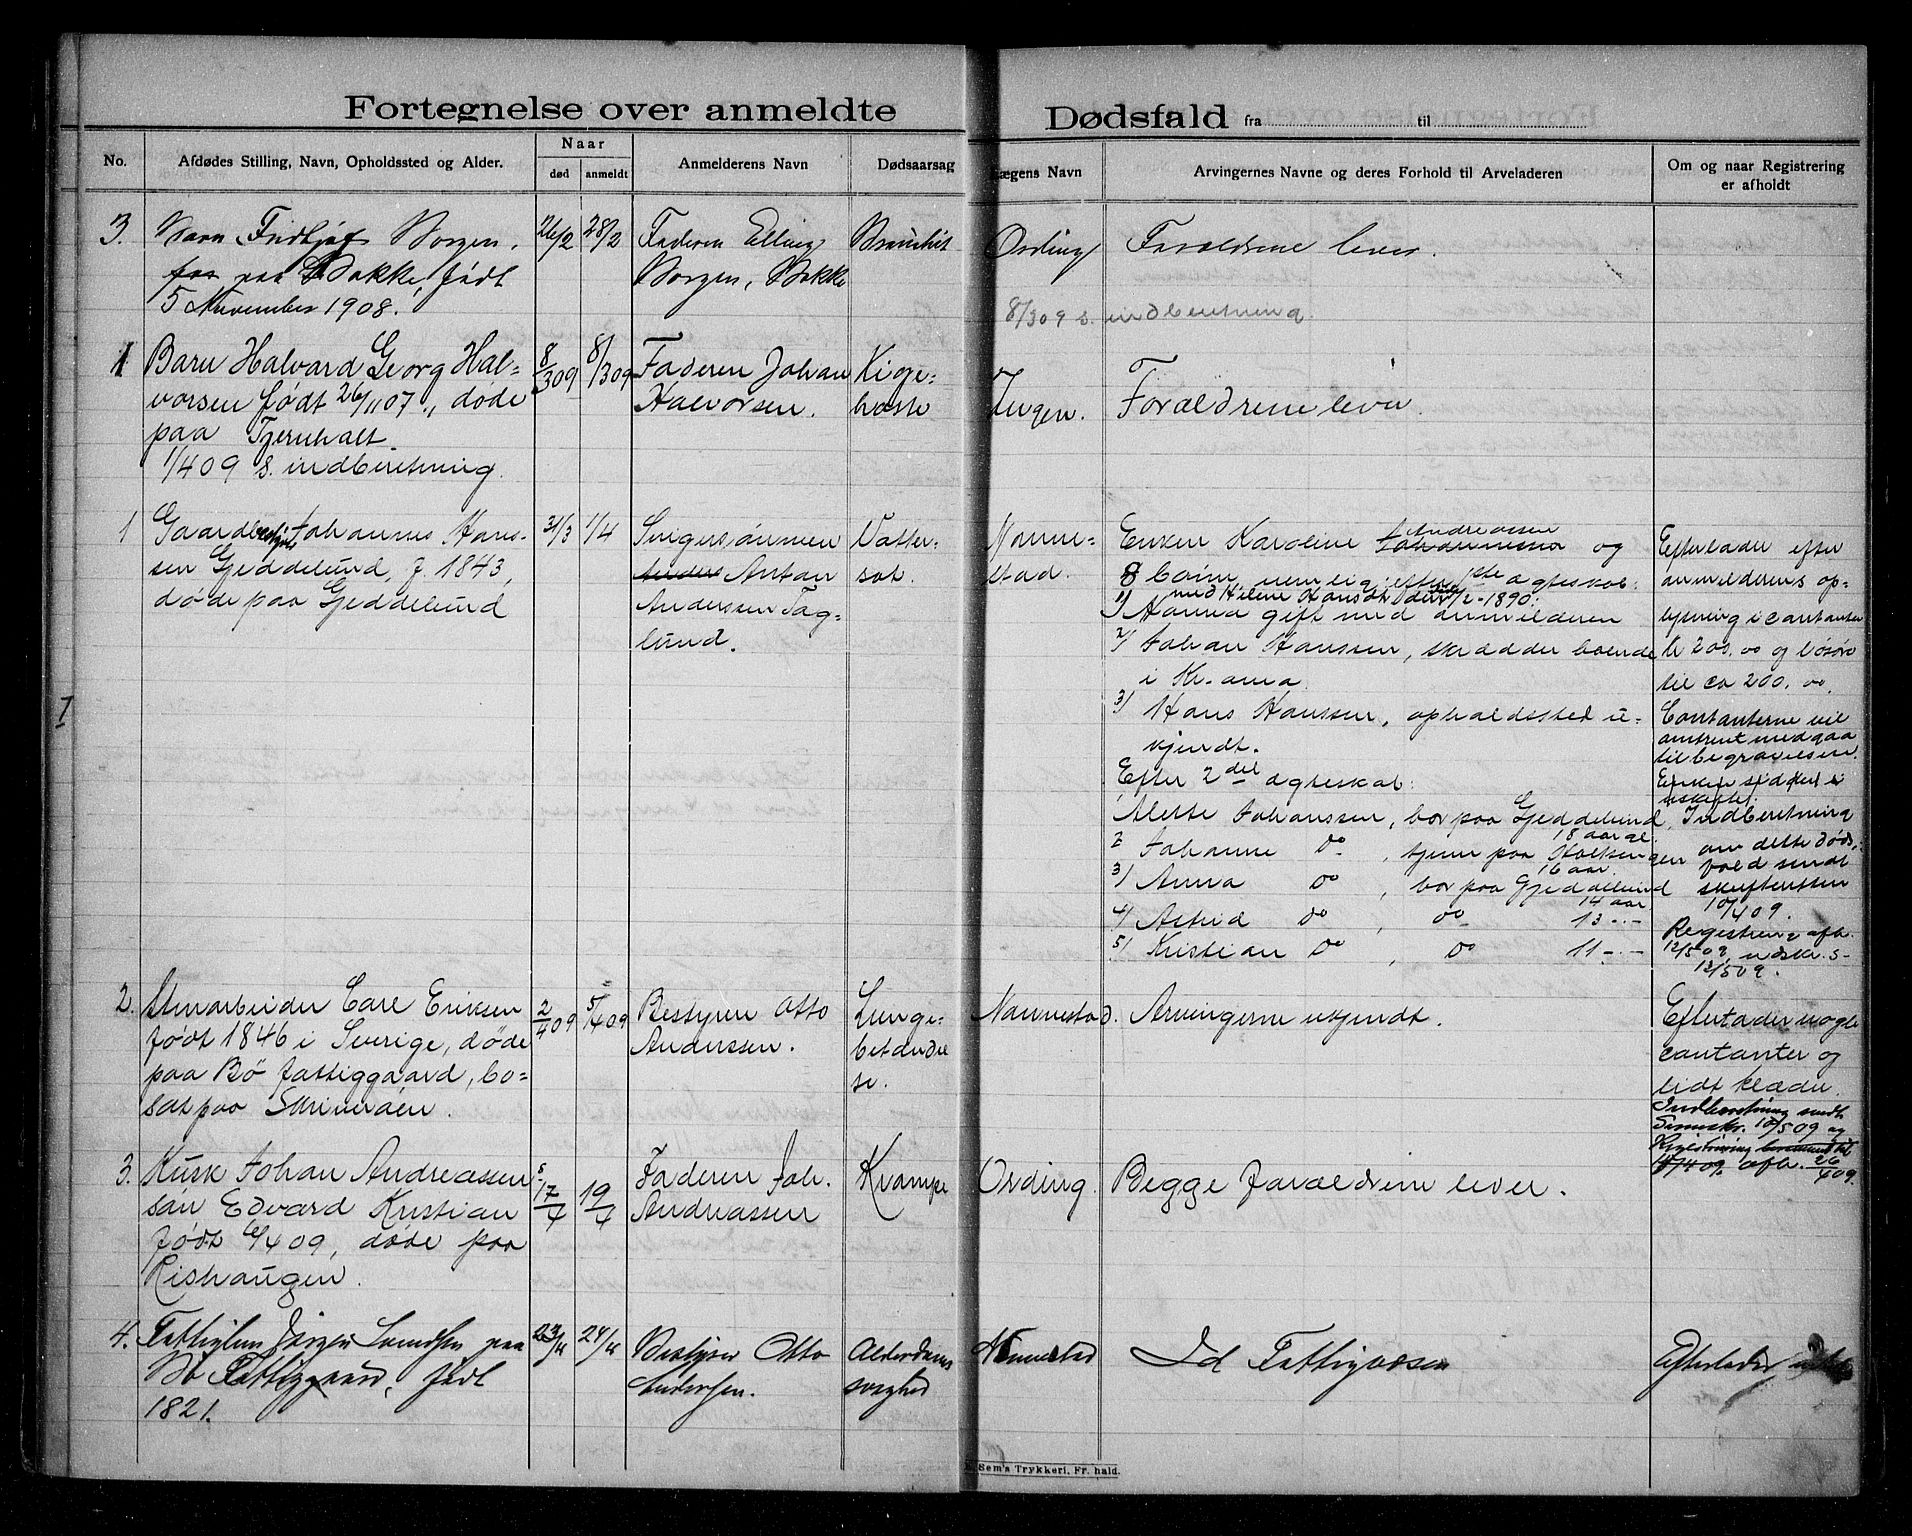 Fortegnelse over anmeldte Dødsfald fra til
No.
Afdødes Stilling, Navn, Opholdssted og Alder.
Naar
død
anmeldt
Anmelderens Navn
Dødsaarsag
ægens Navn
Arvingernes Navne og deres Forhold til Arveladeren
Om og naar Registrering
er afholdt
3.
Barn Fridtjof Borgen,
paa Bakke, født
5 November 1908.
26/2
28/2
Faderen Elling
Borgen, Bakke
Ording
Forældrene lever.
8/309 s. indberetning.
1
Barn Halvard Georg Hal-
vorsen født 26/11 07, døde
paa Tjernholt.
1/409 s. indberetning.
8/309
8/309
Faderen Johan
Halvorsen.
Kige-
hoste
Ingen.
Forældrene lever.
1
Gaardbestyrer Johannes Hans-
sen Gjeddelund, f. 1843,
døde paa Gjeddelund
31/3
1/4
Svigersønnen
Anders Anton
Andersen Tag-
lund.
Vatter-
sot.
Nanne-
stad.
Enken Karoline Johannessen Andreassen og
8 børn, nemlig efter 1ste ægteskab:
med Helene Hansdr død 1/2-1890:
1/ Hanna gift med anmelderen
2/ Johan Hanssen, skrædder boende
i Kr.ania
3/ Hans Hanssen, opholdssted u-
kjendt.
Efter 2det ægteskab:
Alette Johanssen, bor paa Gjeddelund,
18 aar gl.
2 Johanne do, tjener paa Holtsengen
16 aar.
3/ Anna do, bor paa Gjeddelund
14 aar
4/ Astrid do, do 13 - -
5/ Kristian do, do 11 - -
Efterlader efter
anmelderens op-
lysning i contanter
kr 200.00 og løsøre
til ca 200.00.
Contanterne vil
omtrent medgaa
til begravelsen.
Enken sidder i
uskiftet.
Indberetning
om dette døds-
fald sendt
skifteretten
10/409.
Registrering afh.
12/509, udskr. s-
12/509.
2.
Stenarbeider Carl Eriksen
født 1846 i Sverige, døde
paa Bø fattiggaard, bo-
sat paa Skriverøen.
2/409
5/409
Bestyren Otto
Anderssen.
Lunge-
betændel
se.
Nannestad.
Arvingerne ukjendt.
Efterlader nogle
contanter og
lidt klæder.
Indberetning sendt
Sorenskr. 10/509 og
Registrering
afh. 26/409.
3.
Kusk Johan Andreassen
søn Edvard Kristian
født 6/409, døde paa
Rishaugen.
17/4
19/4
Faderen Joh.
Andreassen
Krampe
Ording.
Begge forældrene lever.
4.
Fattiglem Jørgen Svendsen paa
Bø Fattiggaard, født
1821.
23/4
24/4
Bestyrer Otto
Andersen.
Alderdoms
svaghed
Nannestad
Fattigvæsen
Efterlader intet
Sem's Trykkeri, Fr. hald.